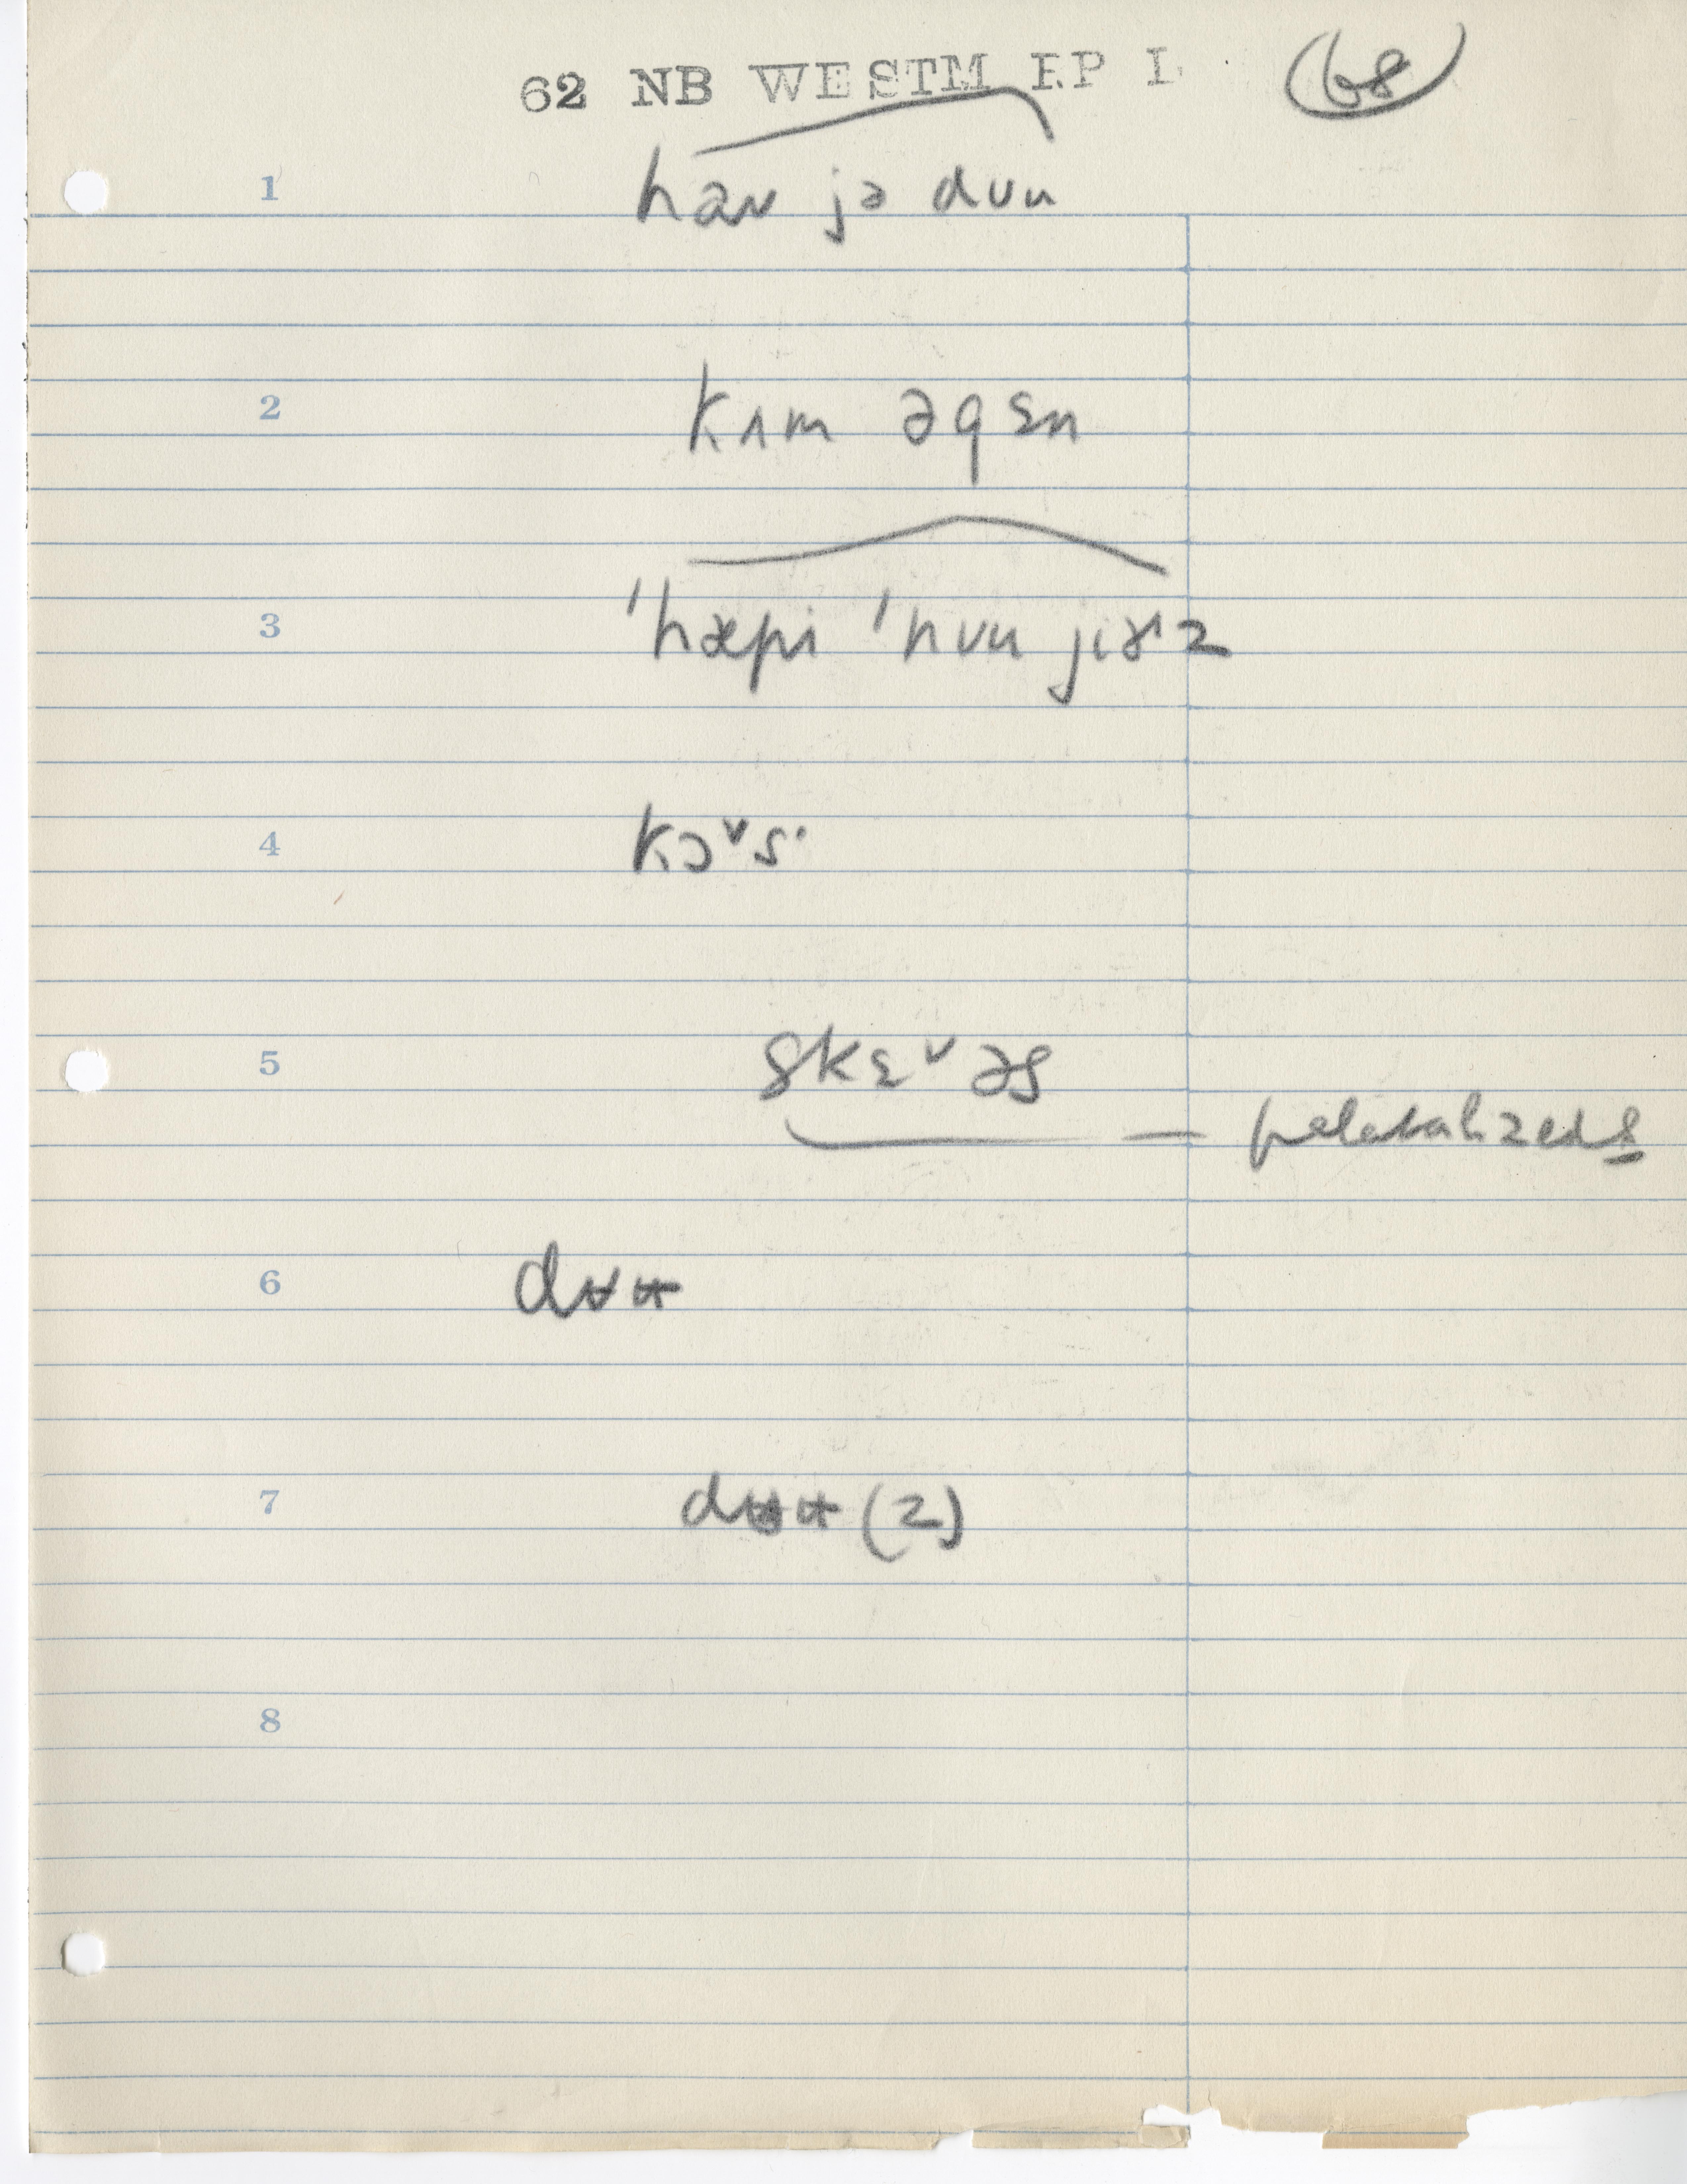 62 NB WESTM RP I
68
1 haʊ jə dʊu
2 kʌm əgɛn
3 ˈhæpi ˈnʊu jiɚz
4 kɔˇs·
5 skɛˇəs — palatalized s
6 dʉʉ
7 dʉʉ (z)
8